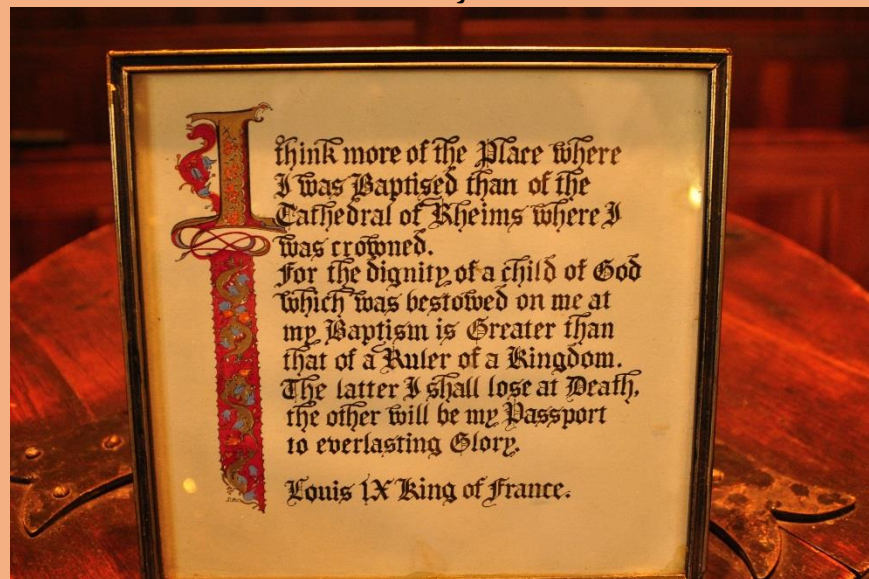 I think more of the Place where
I was Baptised than of the
Cathedral of Rheims where I
was crowned.
For the dignity of a child of God
which was bestowed on me at
my Baptism is Greater than
that of a Ruler of a Kingdom.
The latter I shall lose at Death,
the other will be my Passport
to everlasting Glory.
Louis IX King of France.